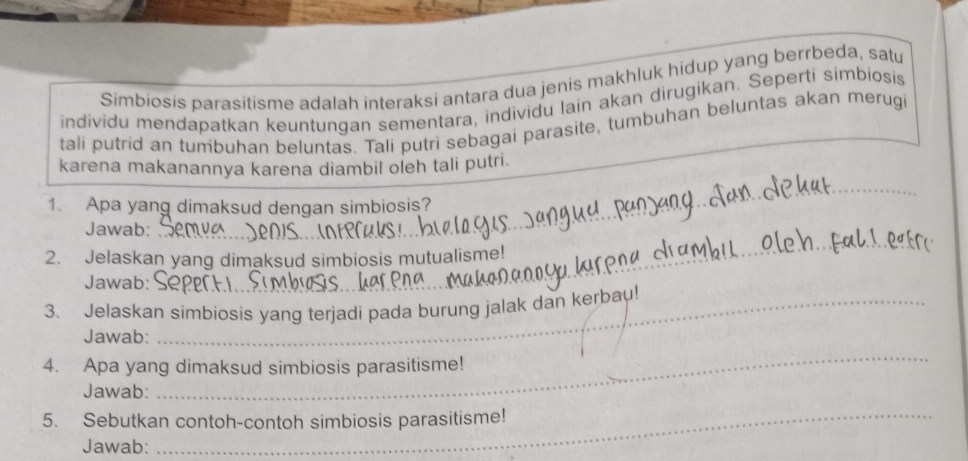 Simbiosis parasitisme adalah interaksi antara dua jenis makhluk hidup yang berrbeda, satu
individu mendapatkan keuntungan sementara, individu lain akan dirugikan. Seperti simbiosis
tali putrid an tumbuhan beluntas. Tali putri sebagai parasite, tumbuhan beluntas akan merugi
karena makanannya karena diambil oleh tali putri.
1. Apa yang dimaksud dengan simbiosis?
Jawab: Semua Jenis interaksi biologis Jangua panjang dan dekat
2. Jelaskan yang dimaksud simbiosis mutualisme!
Jawab: Seperti Simbiosis karena makanannya karena diambil oleh tali
3. Jelaskan simbiosis yang terjadi pada burung jalak dan kerbau!
Jawab:
4. Apa yang dimaksud simbiosis parasitisme!
Jawab:
5. Sebutkan contoh-contoh simbiosis parasitisme!
Jawab: